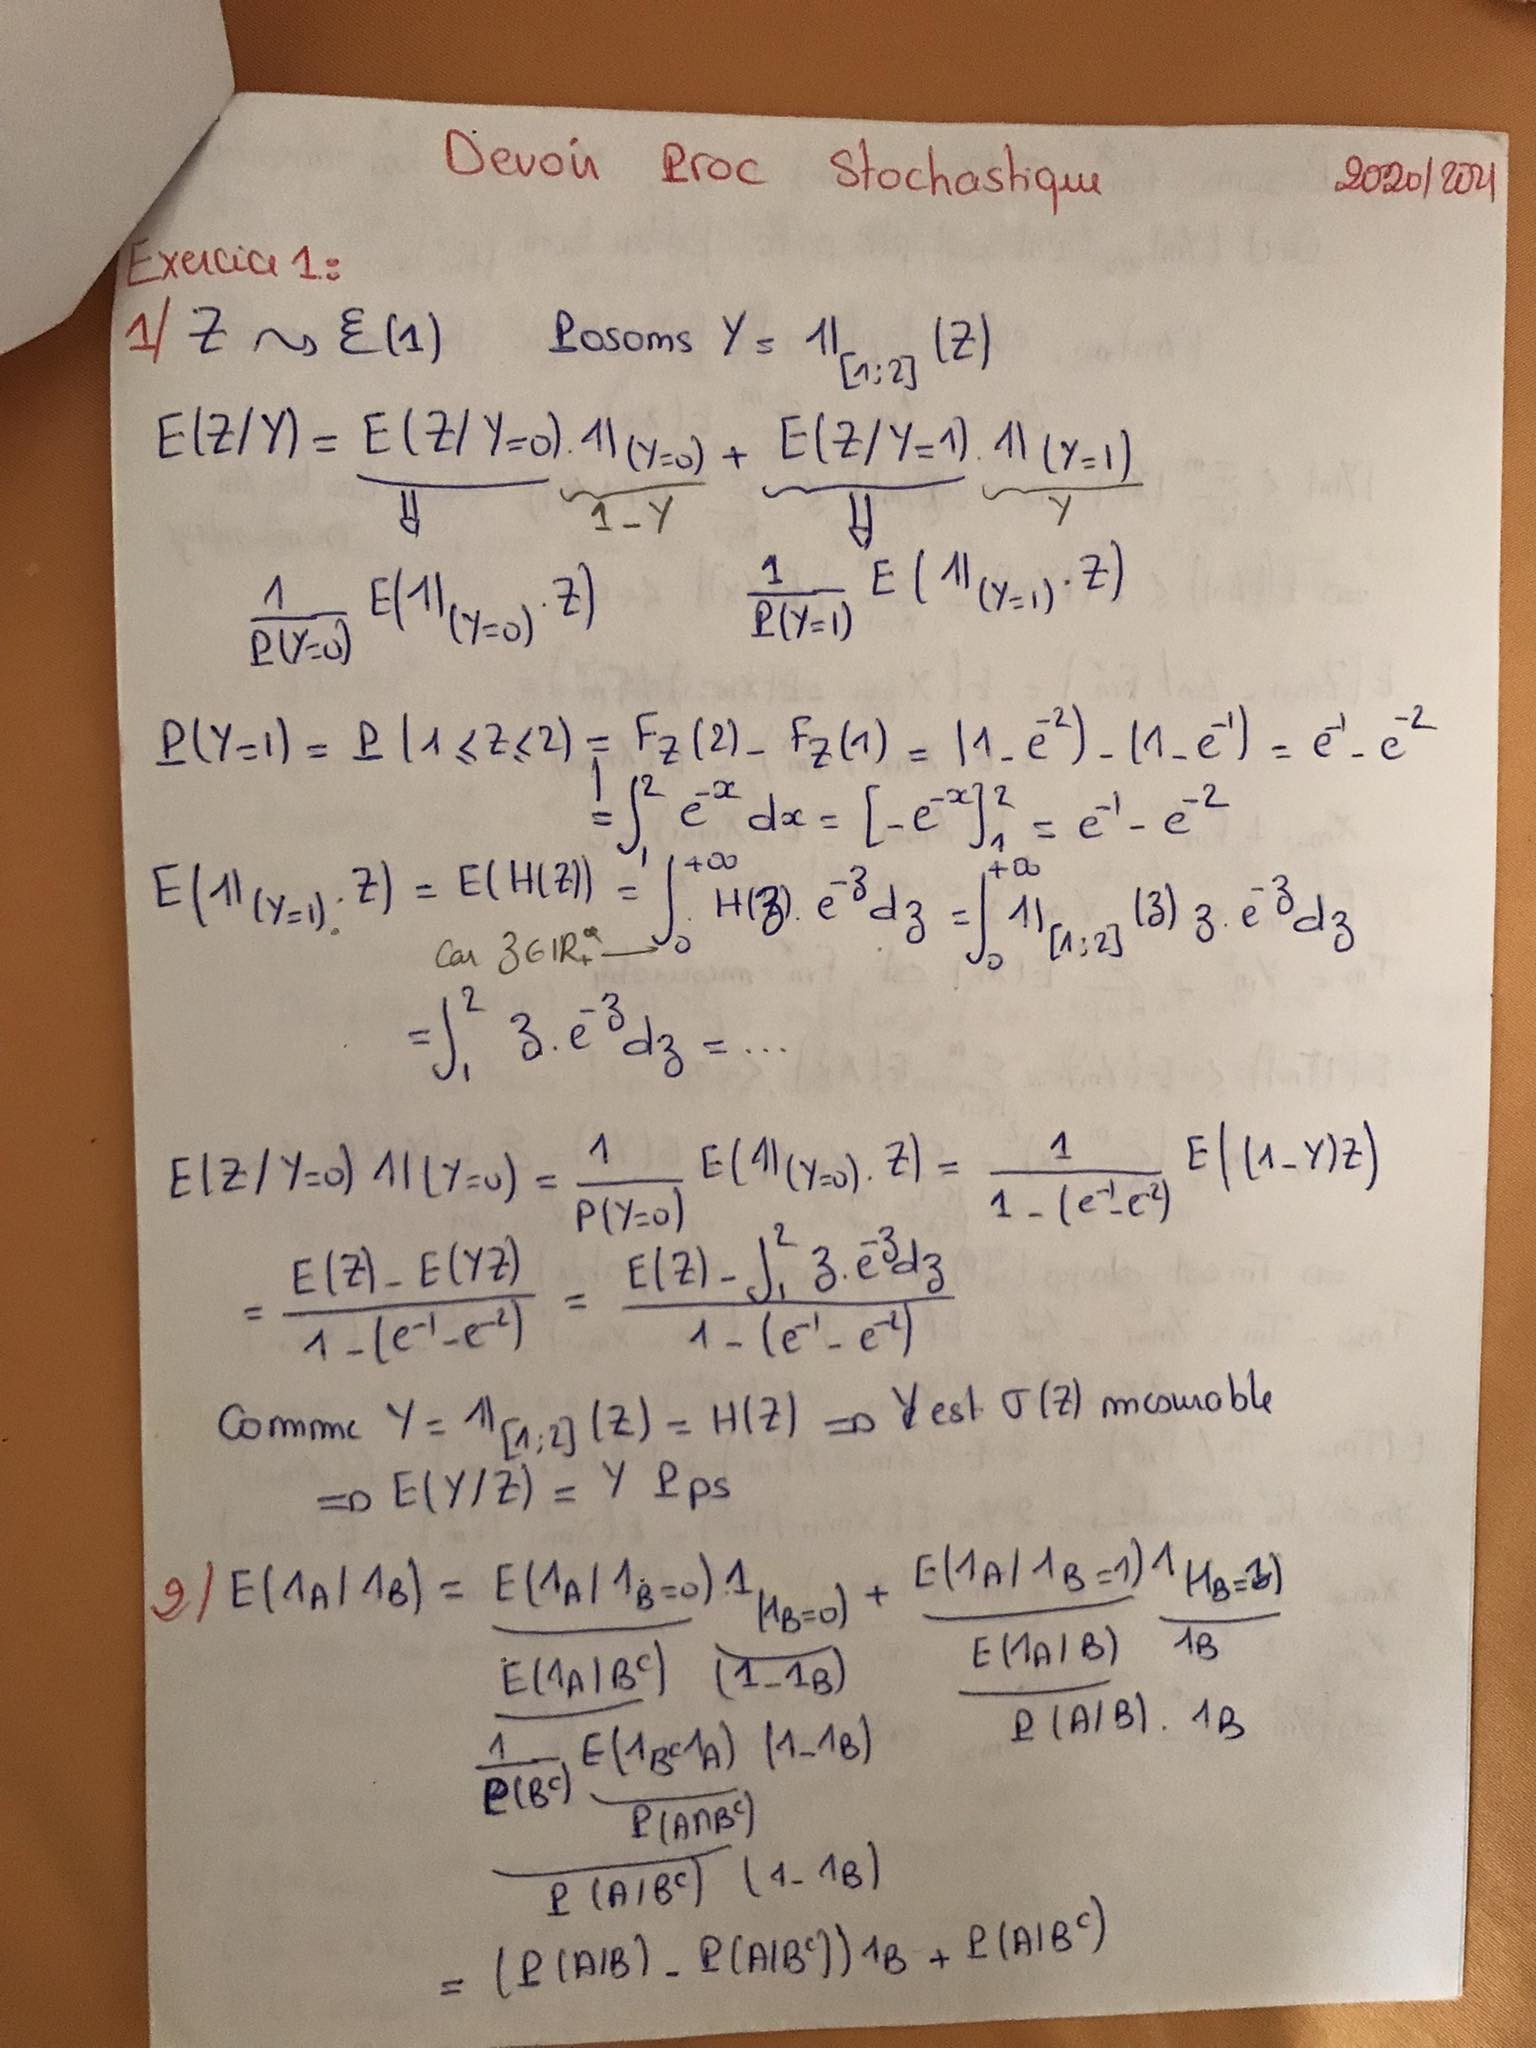 Devoir Proc Stochastique 2020/2021
Exercice 1:
1/ Z ↝ Ɛ(1) Posons Y = 𝟙_[1;2] (Z)
E(Z/Y) = E(Z/Y=0). 𝟙_(Y=0) + E(Z/Y=1). 𝟙_(Y=1)
⇓ 1-Y ⇓ Y
1/P(Y=0) E(𝟙_(Y=0) . Z) 1/P(Y=1) E(𝟙_(Y=1) . Z)
P(Y=1) = P(1⩽Z⩽2) = F_Z(2) - F_Z(1) = (1-e^-2) - (1-e^-1) = e^-1 - e^-2
= ∫_1^2 e^-x dx = [-e^-x]_1^2 = e^-1 - e^-2
E(𝟙_(Y=1) . Z) = E(H(Z)) = ∫_0^+∞ H(z). e^-z dz = ∫_0^+∞ 𝟙_[1;2] (z) z. e^-z dz
Car z∈IR_+^* →
= ∫_1^2 z. e^-z dz = ...
E(Z/Y=0) 𝟙(Y=0) = 1/P(Y=0) E(𝟙_(Y=0) . Z) = 1/(1-(e^-1-e^-2)) E((1-Y)Z)
= (E(Z) - E(YZ))/(1-(e^-1-e^-2)) = (E(Z) - ∫_1^2 z. e^-z dz)/(1-(e^-1-e^-2))
Comme Y = 𝟙_[1;2] (Z) = H(Z) ⇒ Y est σ(Z) mesurable
⇒ E(Y/Z) = Y Pps
2/ E(1_A / 1_B) = E(1_A / 1_B=0) . 1_(1_B=0) + E(1_A / 1_B=1) 1_(1_B=1)
E(1_A | B^c) (1-1_B) E(1_A | B) 1_B
1/P(B^c) E(1_B^c 1_A) (1-1_B) P(A/B). 1_B
P(A∩B^c)
P(A/B^c) (1-1_B)
= (P(A/B) - P(A/B^c)) 1_B + P(A/B^c)